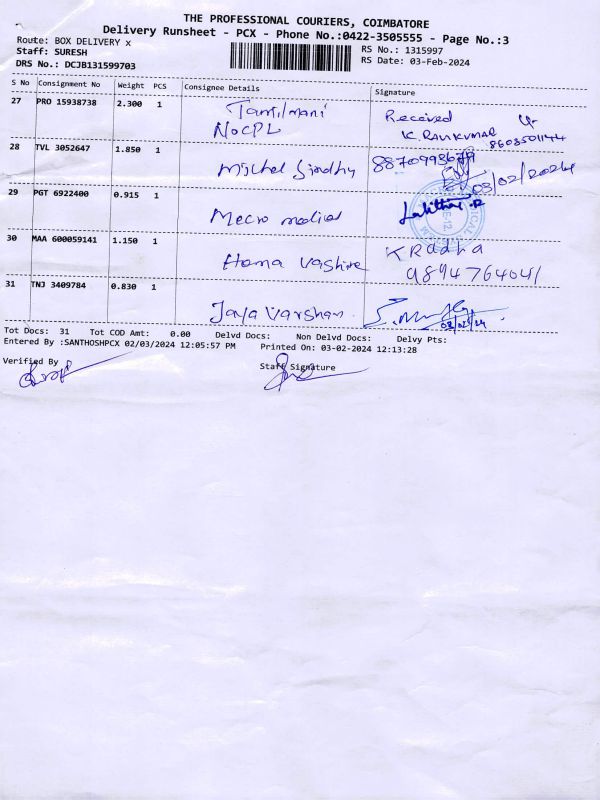 THE PROFESSIONAL COURIERS, COIMBATORE
Delivery Runsheet - PCX - Phone No.:0422-3505555 - Page No.:3
Route: BOX DELIVERY x
RS No.: 1315997
Staff: SURESH
RS Date: 03-Feb-2024
DRS No.: DCJB131599703
S No Consignment No Weight PCS Consignee Details Signature
27 PRO 15938738 2.300 1 Tamilmani Received
NOCPL K. RAVIKUMAR
8603501144
28 TVL 3052647 1.850 1 8870993679
Mischel Sindhy 03/02/2024
29 PGT 6922400 0.915 1
Mecro medical Lalitha.R
30 MAA 600059141 1.150 1 K Radha
Hema Vashine 9894764041
31 TNJ 3409784 0.830 1
Jaya Varshan.
03/02/24
Tot Docs: 31 Tot COD Amt: 0.00 Delvd Docs: Non Delvd Docs: Delvy Pts:
Entered By :SANTHOSHPCX 02/03/2024 12:05:57 PM Printed On: 03-02-2024 12:13:28
Verified By Staff Signature